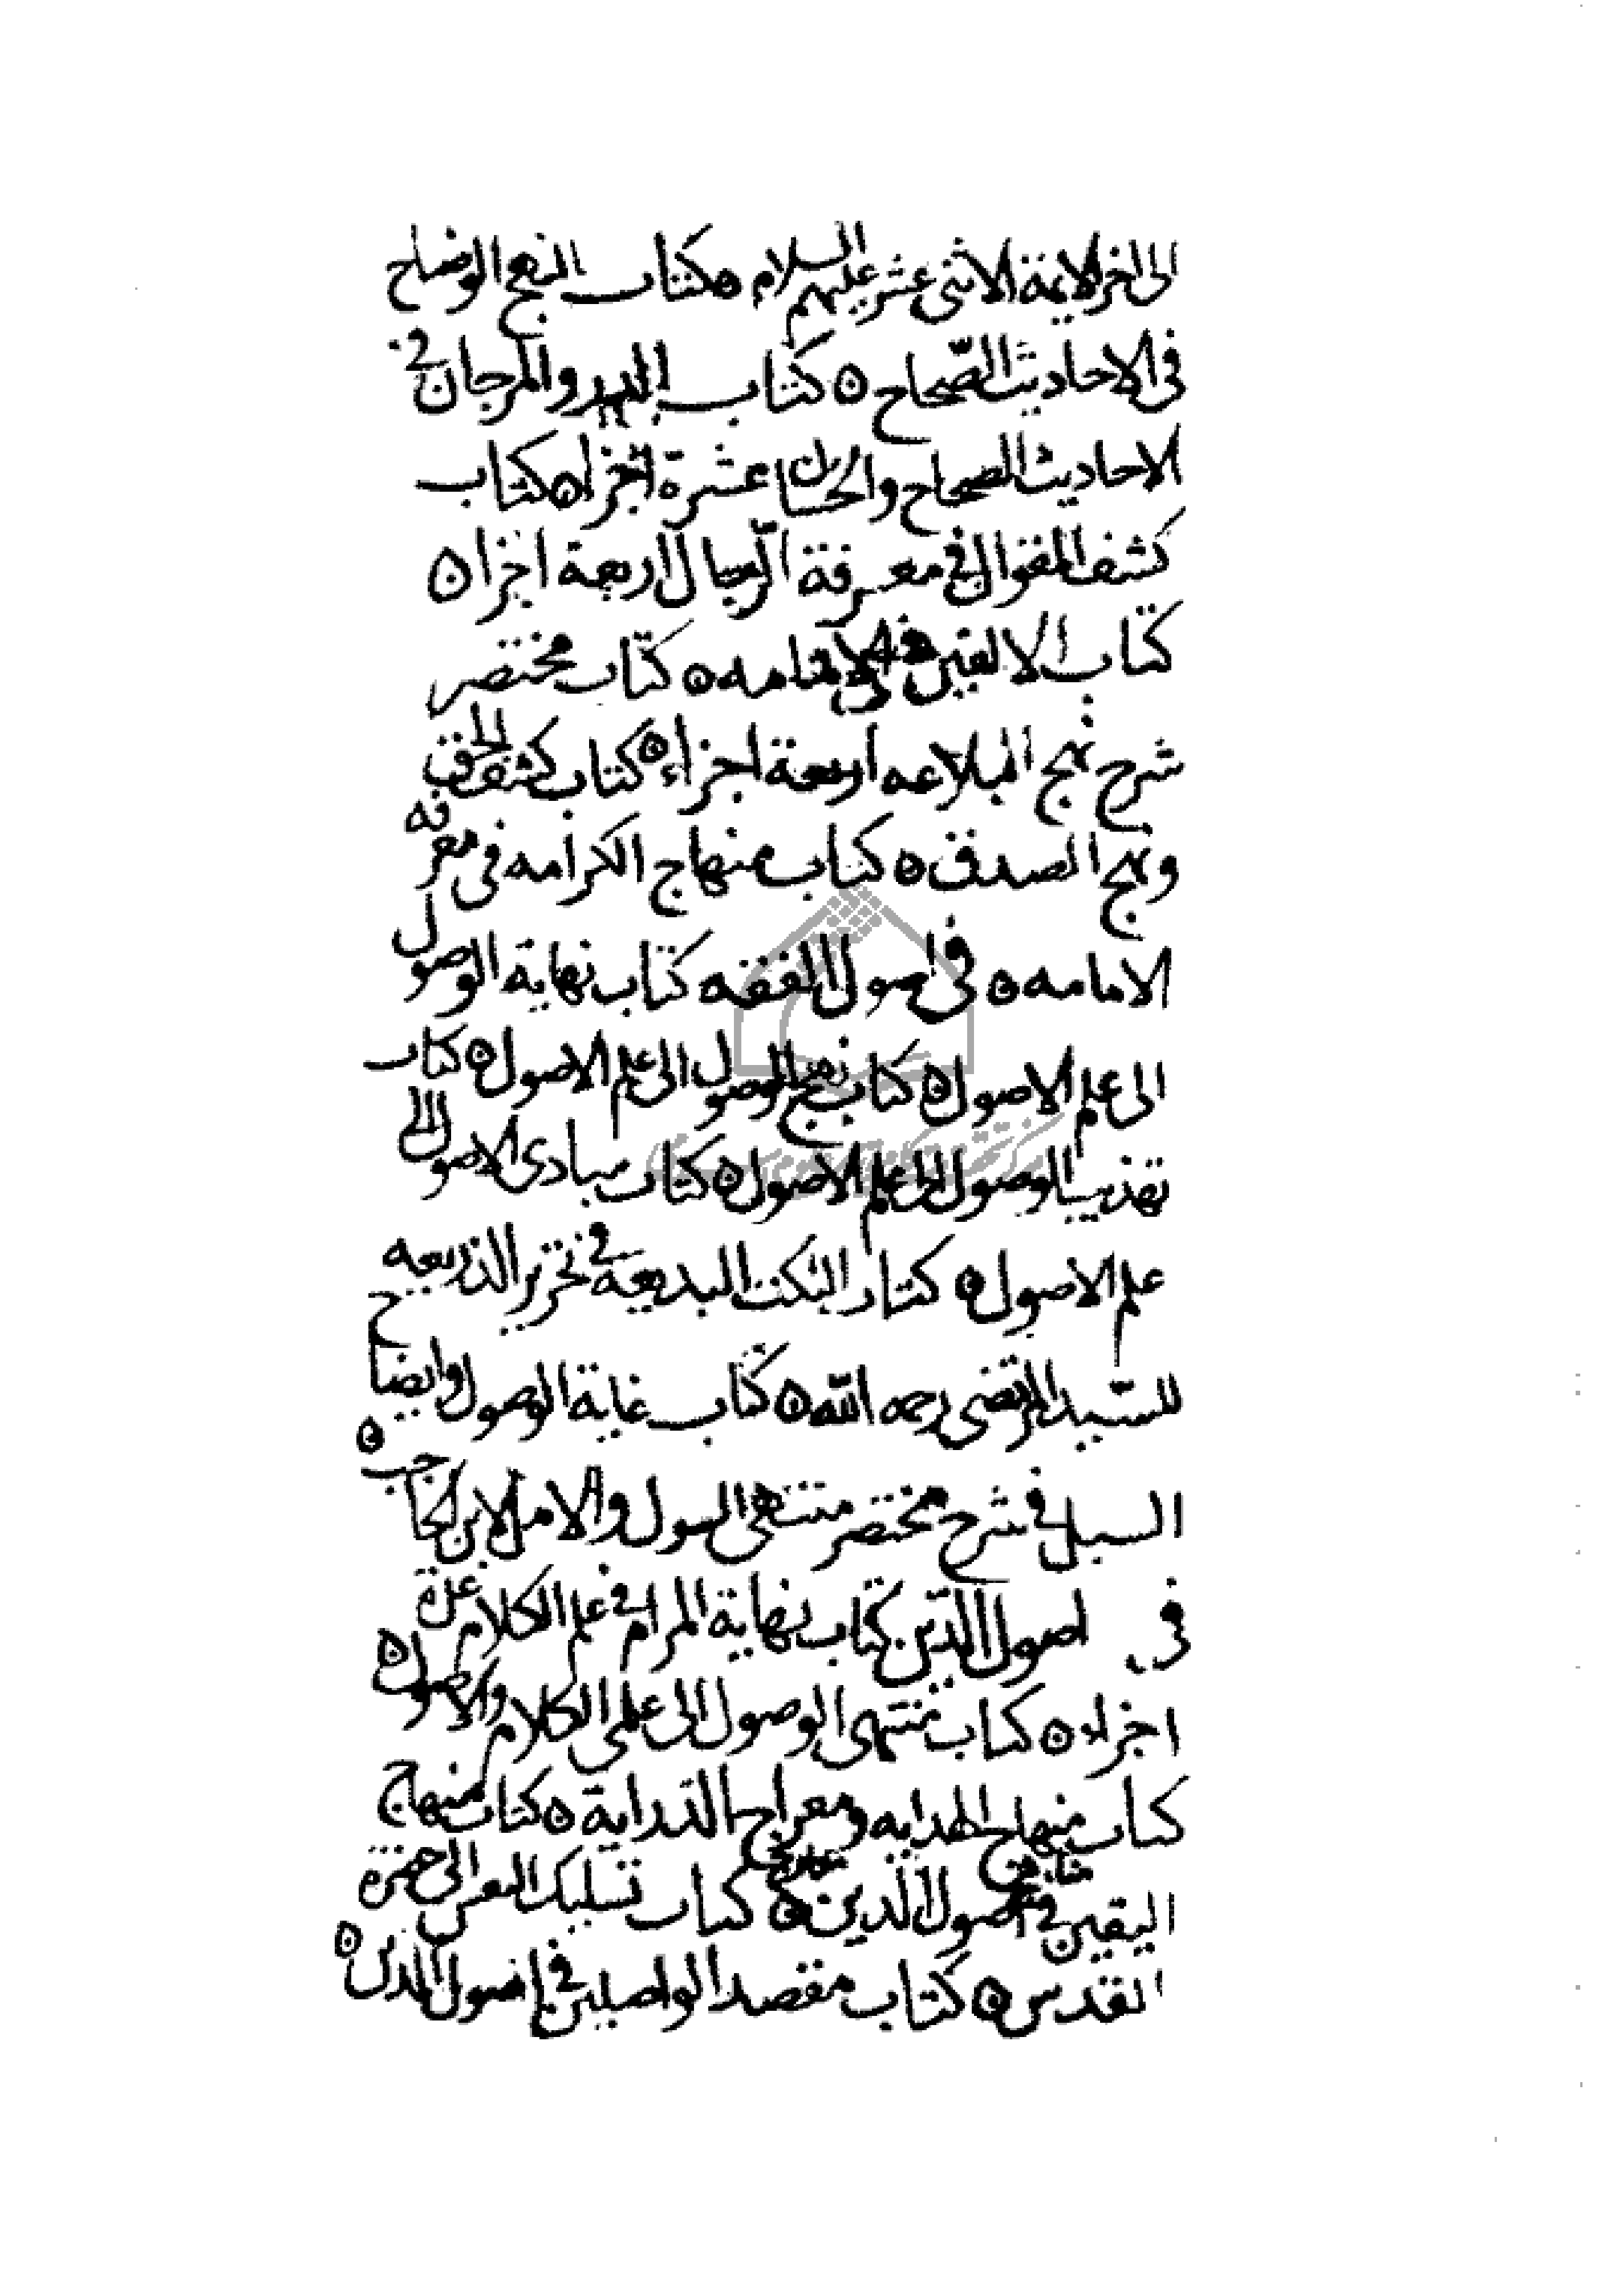 الى اخر الائمة الاثنى عشر عليهم السلام ه كتاب النهج الوضاح
فى الاحاديث الصّحاح ه كتاب الدر والمرجان فى
الاحاديث الصحاح والحسان عشرة اجزاء ه كتاب
كشف المقوال فى معرفة الرّجال اربعة اجزا ه
كتاب الالفين الامامه ه كتاب مختصر
شرح نهج البلاعه اربعة اجزاء ه كتاب كشف الحق
ونهج الصدق ه كتاب منهاج الكرامه فى معرفه
الامامه ه فى اصول الفقه كتاب نهاية الوصول
الى علم الاصول ه كتاب نهج الوصول الى علم الاصول ه كتاب
تهذيب الوصول الى علم الاصول ه كتاب مبادى الاصول الى
علم الاصول ه كتاب النكت البديعه فى تحرير الذريعه
للسّيد المرتضى رحمه الله ه كتاب غاية الوصول وايضاح
السبل فى شرح مختصر منتهى السول والامل لابن الحاجب ه
فى اصول الدّين كتاب نهاية المرام فى علم الكلام عدة
اجزاء ه كتاب منتهى الوصول الى علمي الكلام والاصول ه
كتاب منهاج الهدايه ومعراج الدراية ه كتاب منهاج
اليقين فى اصول الدّين ه كتاب تسليك النفس الى حضرة
القدس ه كتاب مقصد الواصلين فى اصول الدين ه